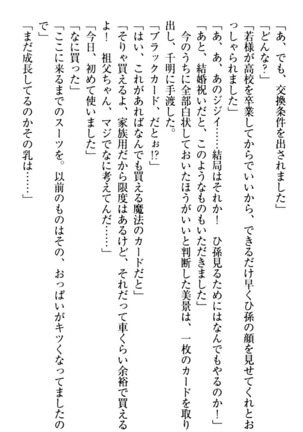 「あ、でも、交換条件を出されました」
「どんな?」
「若様が高校を卒業してからでいいから、できるだけ早くひ孫の顔を見せてくれとお
っしゃられました」
「あ、あ、あのジジイ……結局はそれか! ひ孫見るためにはなんでもやるのか!」
「あと、結婚祝いだと、このようなものもいただきました」
今のうちに全部白状しておいたほうがいいと判断した美景は、一枚のカードを取り
出し、千明に手渡した。
「ブラックカード、だとぉ!?」
「はい、これがあればなんでも買える魔法のカードだと」
「そりゃ買えるよ、家族用だから限度はあるけど、それだって車くらい余裕で買える
よ! 祖父ちゃん、マジでなに考えてんだ……」
「今日、初めて使いました」
「なに買った」
「ここに来るまでのスーツを。以前のものはその、おっぱいがキツくなってましたの
で」
「まだ成長してるのかその乳は……」